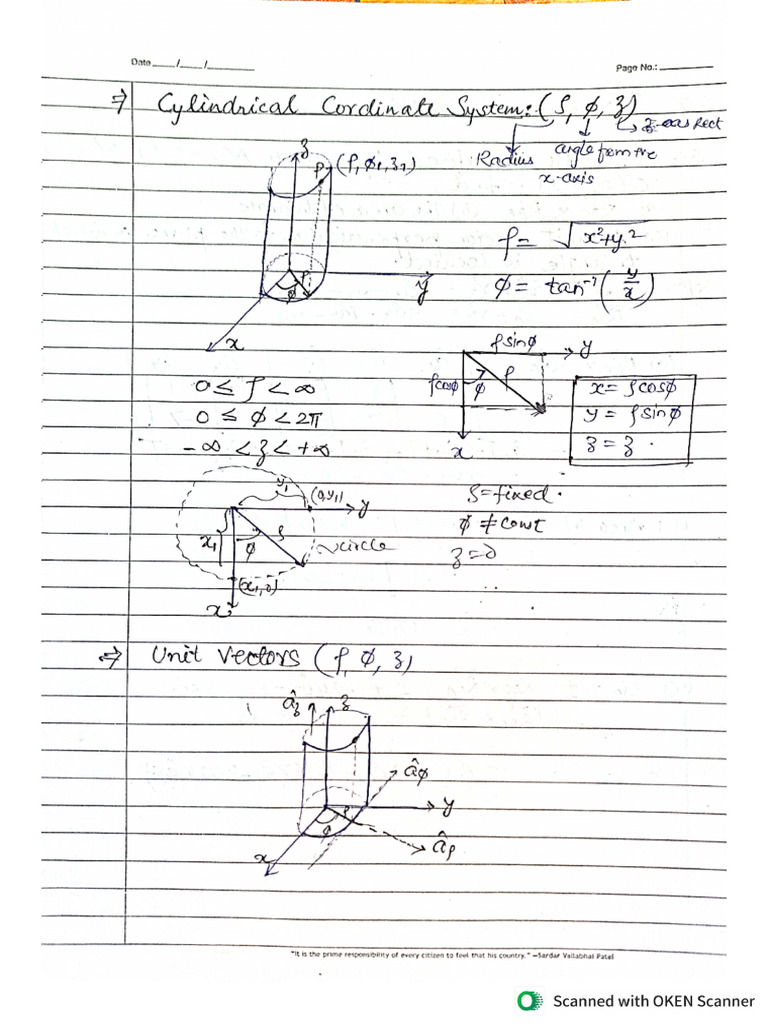 Date ___/___/______
Page No.: ________
⇒ Cylindrical Cordinate System: (ρ, φ, z)
Radius
angle from the
x-axis
z
P (ρ, φ1, z1)
ρ
φ
y
x
ρ = √x²+y²
φ = tan⁻¹(y/x)
0 ≤ ρ < ∞
0 ≤ φ < 2π
-∞ < z < +∞
ρsinφ
y
ρcosφ
φ
ρ
x
x = ρcosφ
y = ρsinφ
z = z .
y1
(0,y1)
y
x1
φ
ρ
circle
(x1,0)
x
ρ = fixed.
φ ≠ const
z = 0
⇒ Unit Vectors (ρ, φ, z)
âz
z
âφ
y
ρ
φ
âρ
x
"It is the prime responsibility of every citizen to feel that his country." –Sardar Vallabhai Patel
Scanned with OKEN Scanner